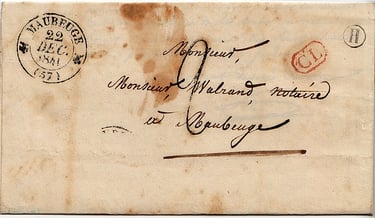 MAUBEUGE
22
DEC.
1841
(57)
CL
H
2
Monsieur,
Monsieur, Walrand, notaire
à Maubeuge